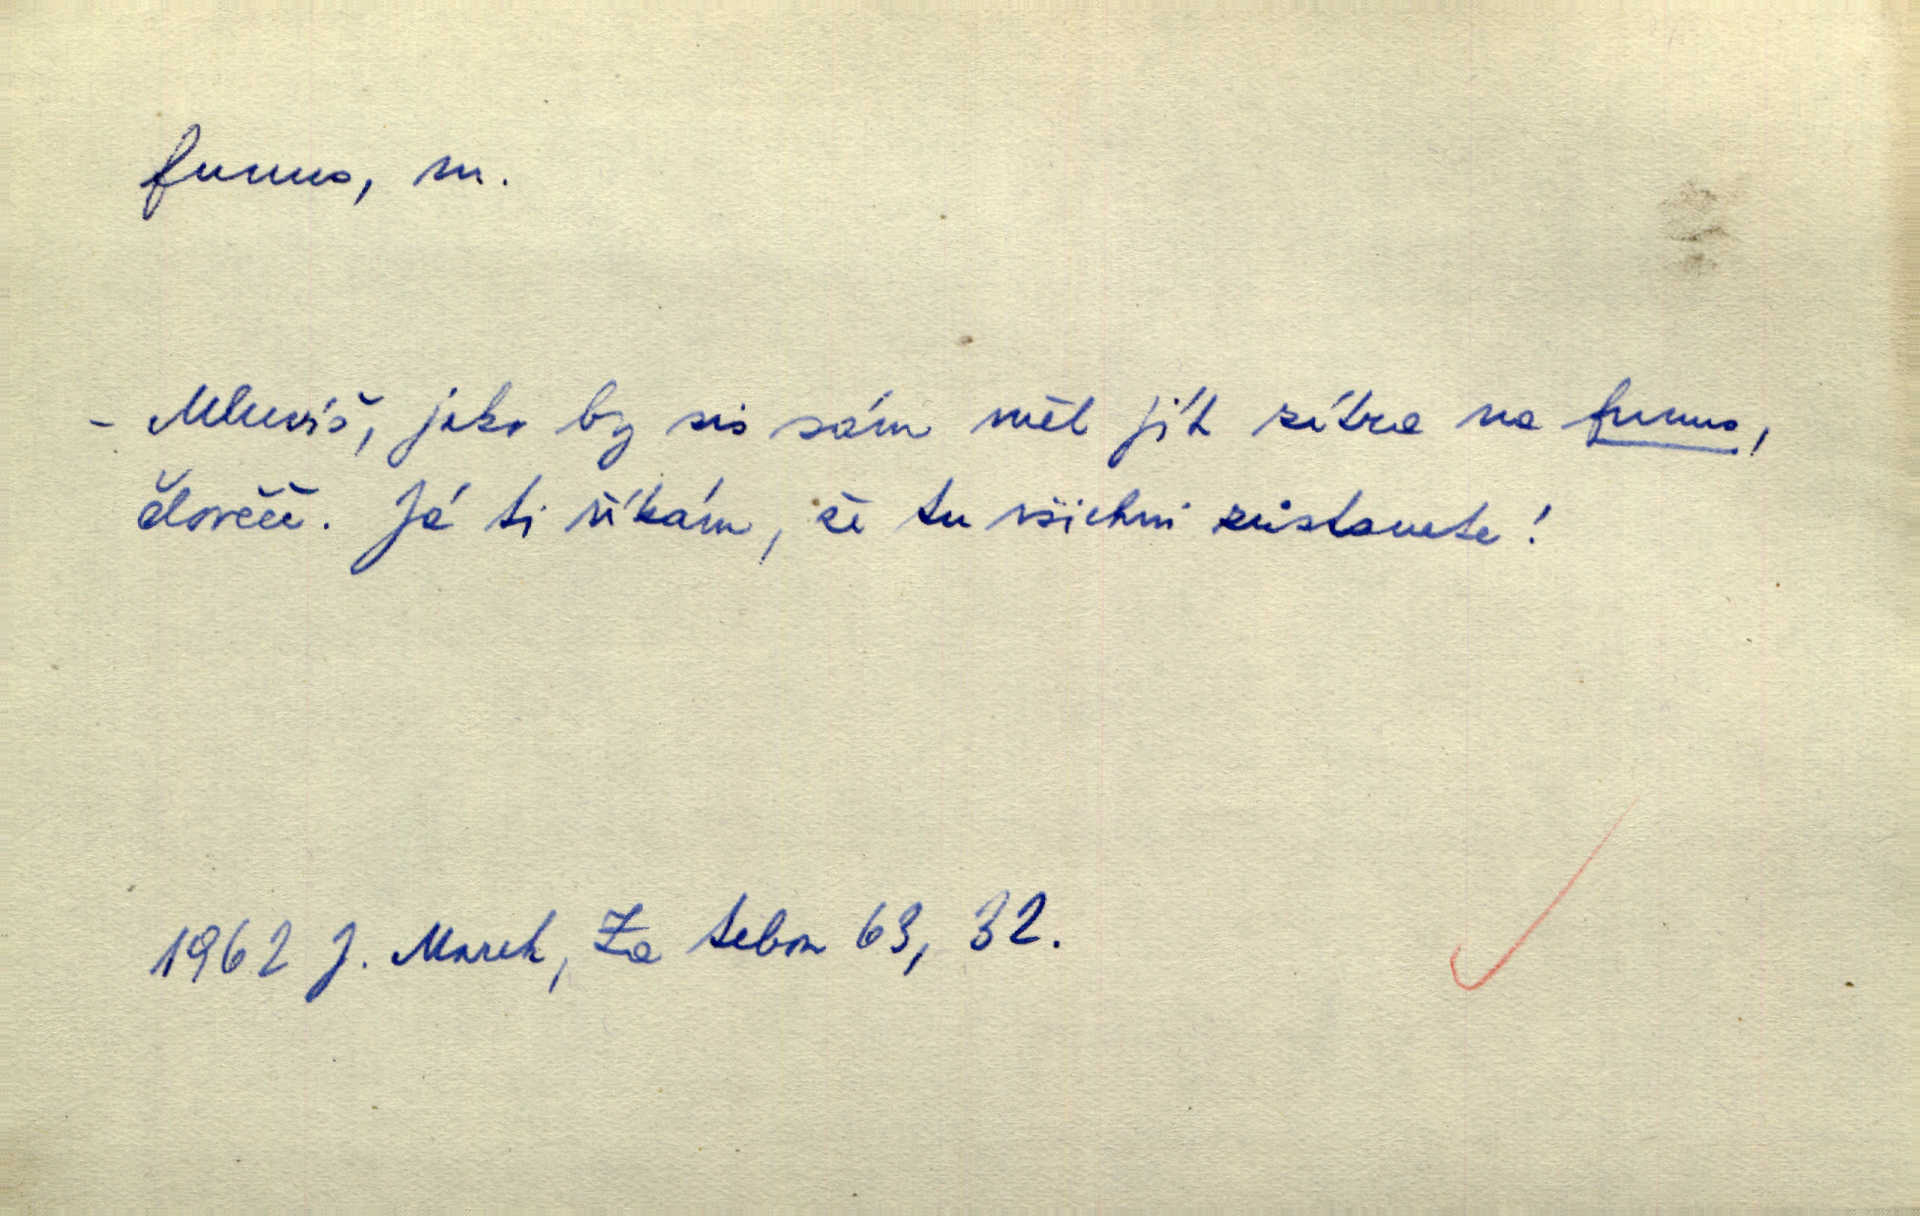 funus, m.
- Mluvíš, jako by sis sám měl jít zítra na funus,
člověče. Já ti říkám, že tu všichni zůstanete!
1962 J. Marek, Za tebou 63, 32.